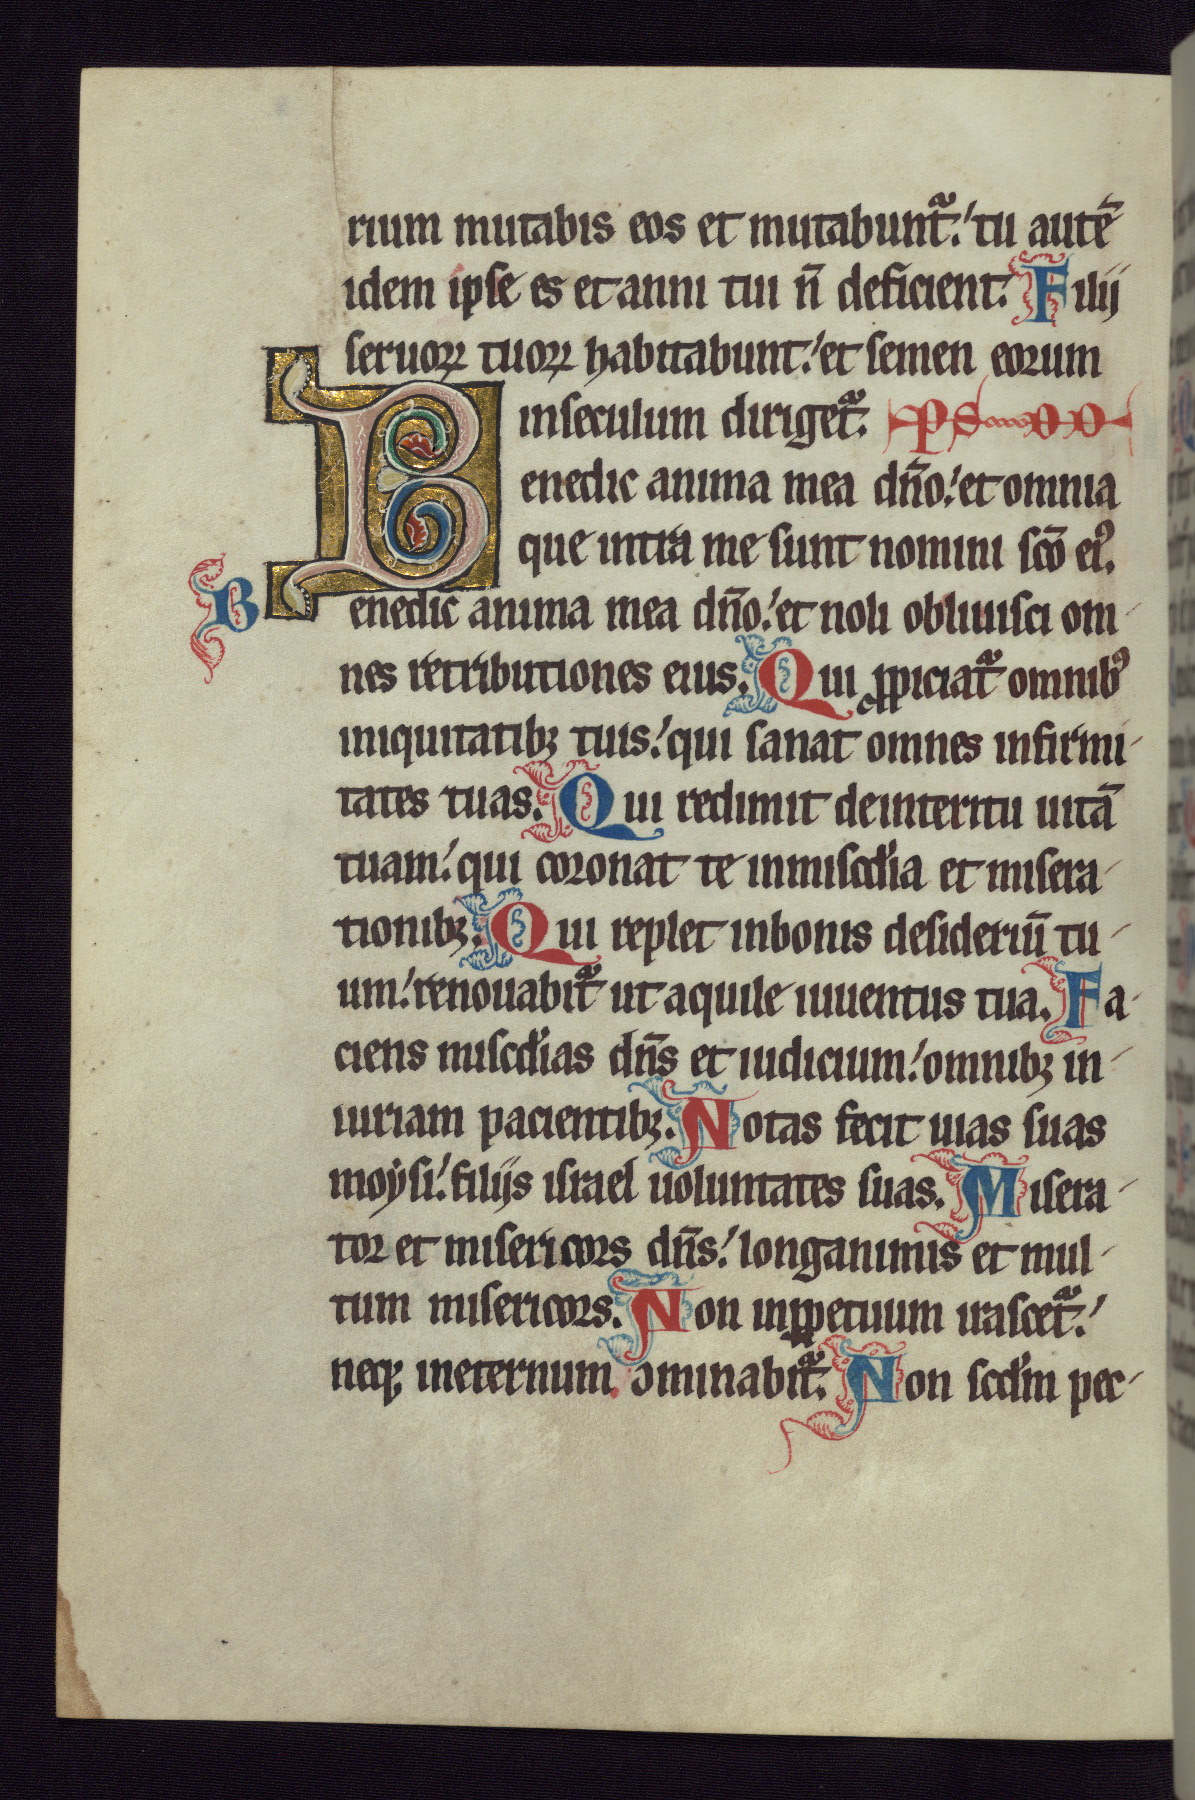 rium mutabis eos et mutabuntᷓ. tu autē
idem ipse es et anni tui n̄ deficient. Filij
seruoꝝ tuoꝝ habitabunt. et semen eorum
inseculum dirigetᷓ. PS
Benedic anima mea dn̄o. et omnia
que intra me sunt nomini sc̄o eiꝰ.
Benedic anima mea dn̄o. et noli obliuisci om-
nes retributiones eius. Qui ꝓpiciatᷓ omnibꝰ
iniquitatibꝫ tuis. qui sanat omnes infirmi-
tates tuas. Qui redimit deinteritu uitā
tuam. qui coronat te inmisc̄dia et misera-
tionibꝫ. Qui replet inbonis desideriū tu-
um. renouabitᷓ ut aquile iuuentus tua. Fa-
ciens misc̄dias dn̄s et iudicium. omnibꝫ in-
iuriam pacientibꝫ. Notas fecit uias suas
moẏsi. filijs israel uoluntates suas. Misera-
tor et misericors dn̄s. longanimis et mul-
tum misericors. Non inꝑpetuum irascetᷓ.
neqꝫ ineternum ꝯminabitᷓ. Non scd̓m pec-